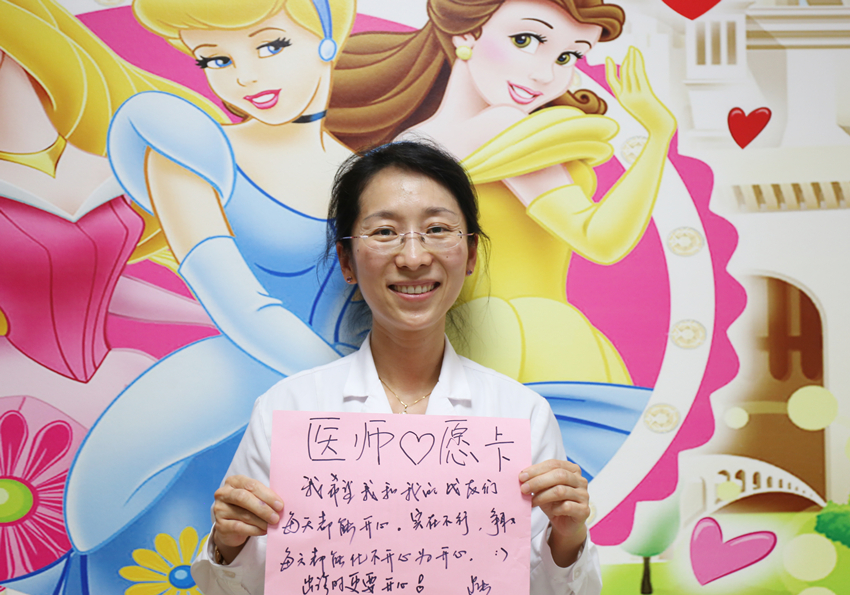 医师♡愿卡
我希望我和我的战友们
每天都能开心。实在不行，争取
每天都能化不开心为开心。:)
出诊时更要开心!